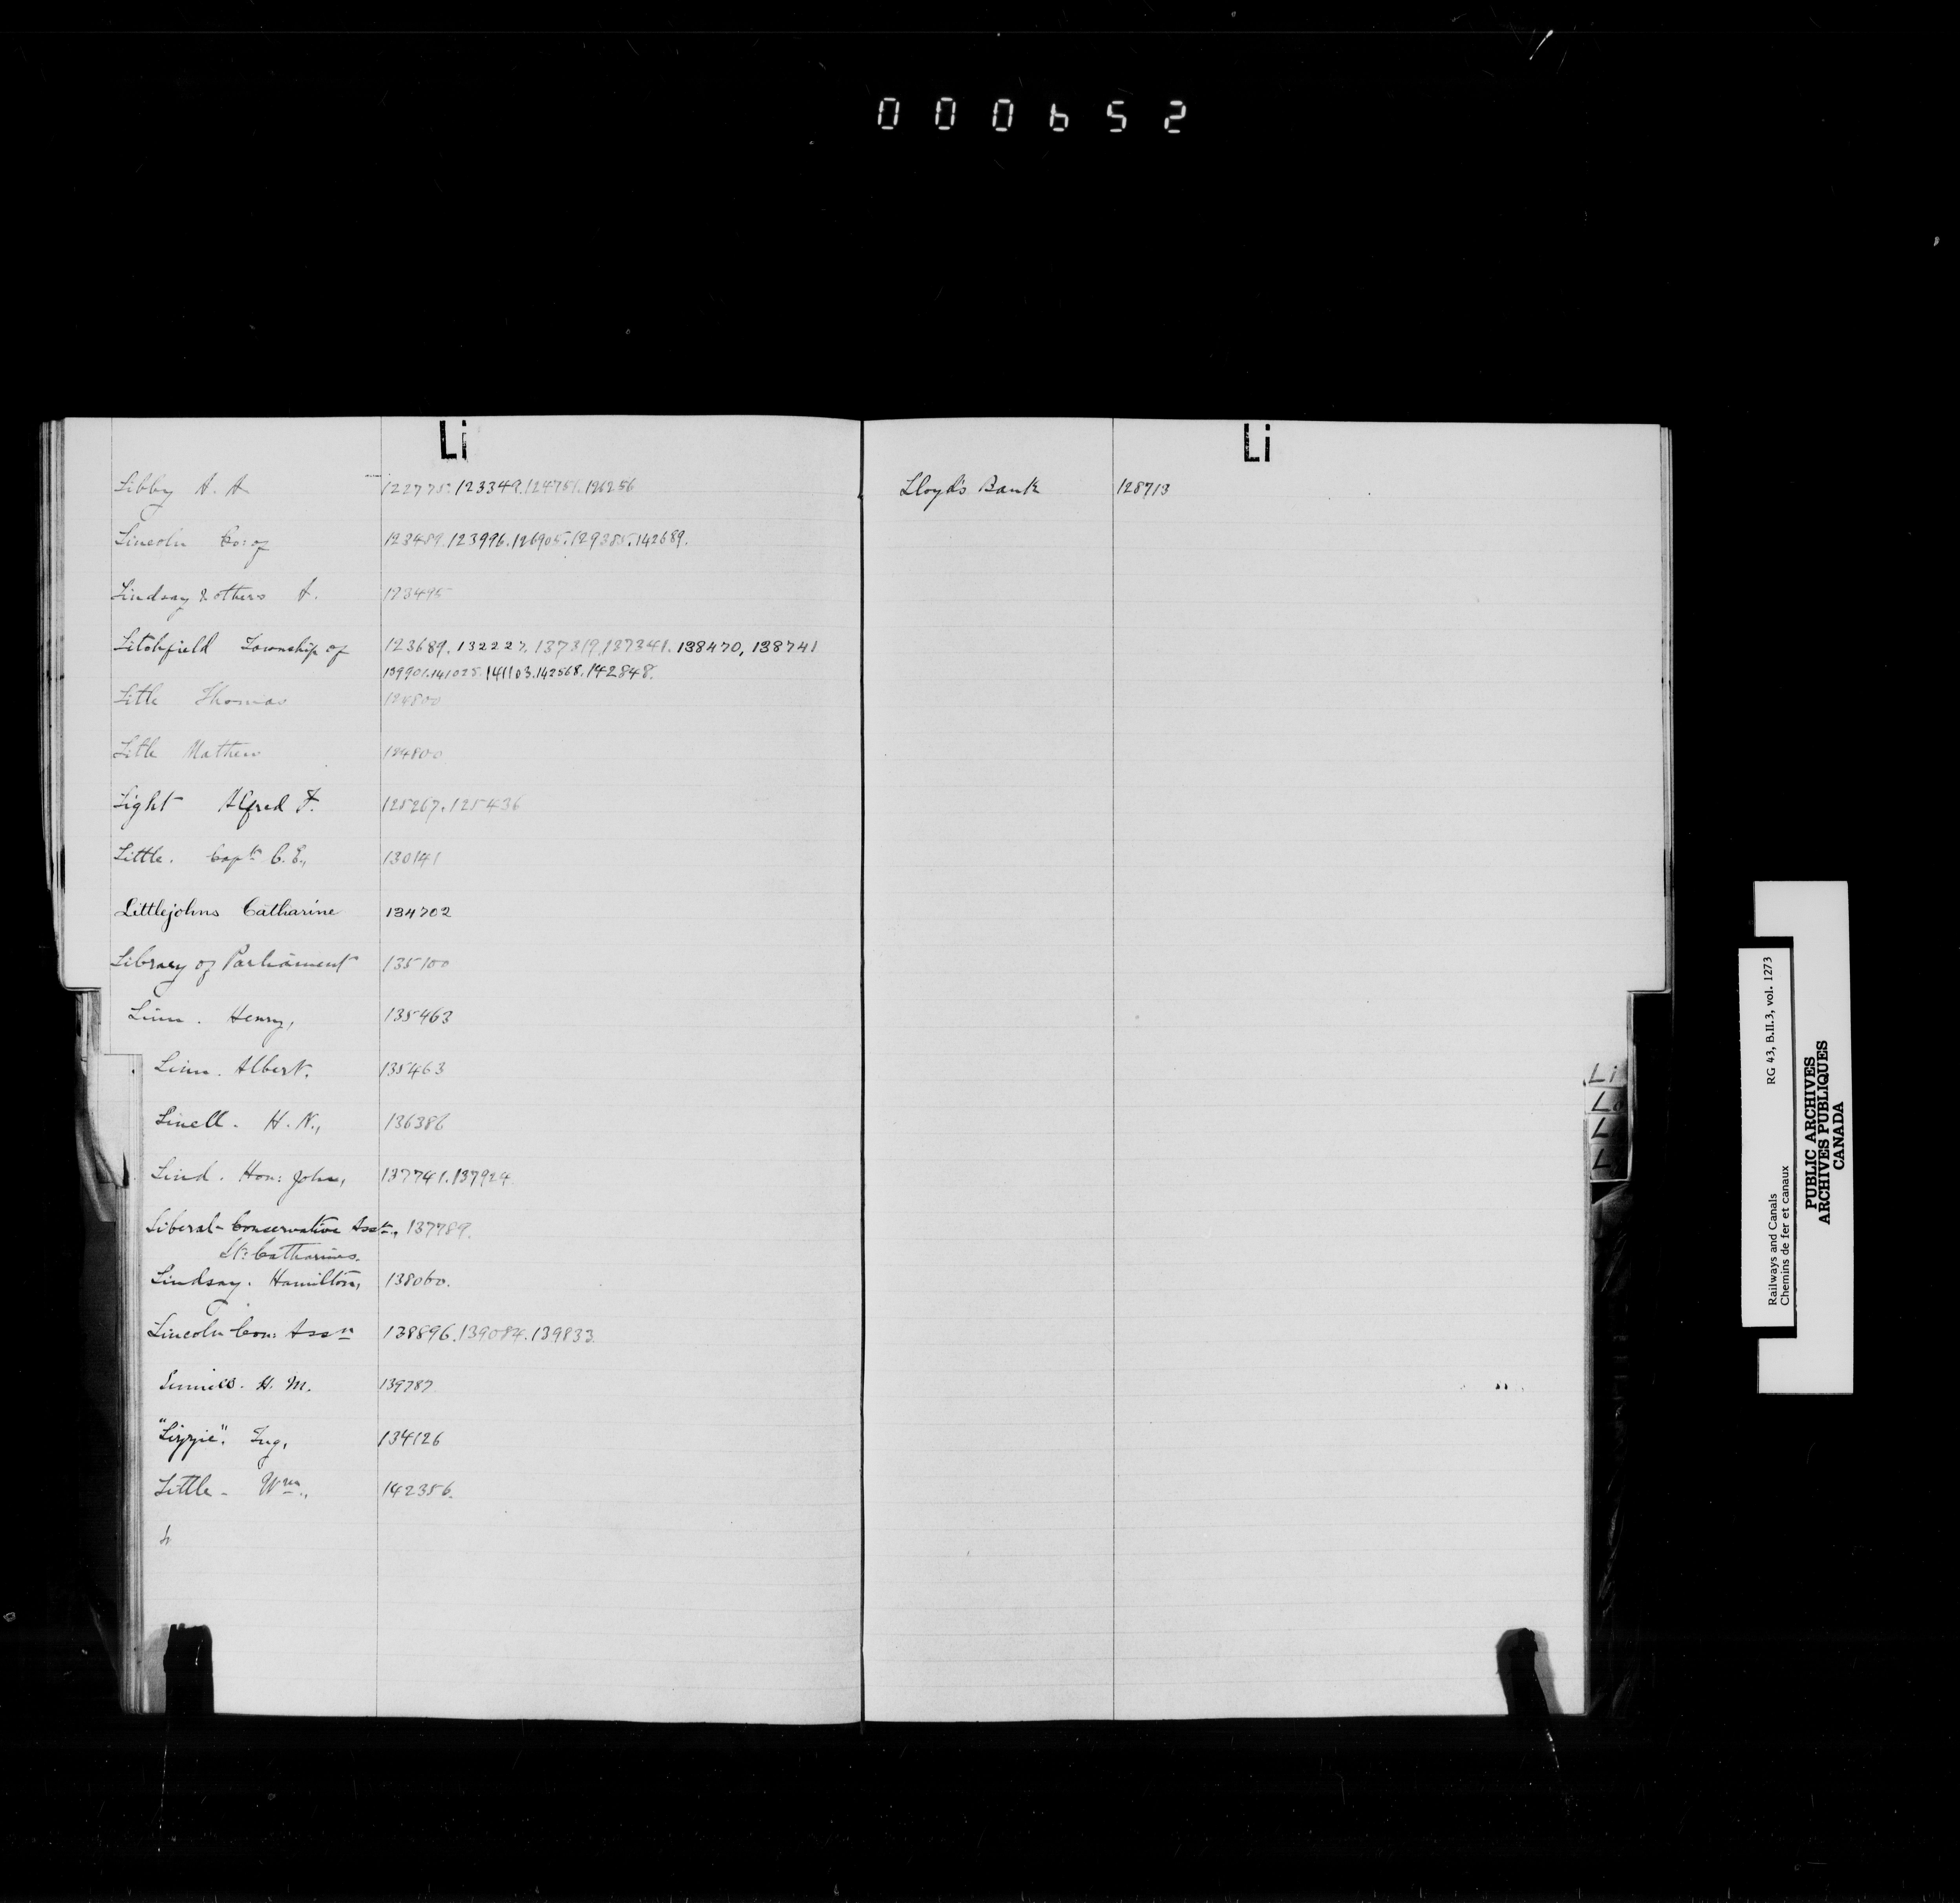 000652
Li
Libby A. A. 122775. 123349. 124751. 126256
Lincoln Co: of 123489. 123996. 126905. 129385. 142689.
Lindsay & others A. 123495
Litchfield Township of 123689. 132227. 137319. 137341. 138470, 138741
139901. 141025. 141103. 142568. 142848.
Litle Thomas 124800
Litle Mathew 124800
Light Alfred F. 125267. 125436
Little. Capt. C. E., 130141
Littlejohns Catharine 134702
Library of Parliament 135100
Linn. Henry, 135463
Linn. Albert. 135463
Linell. H. N., 136386
Lind. Hon: John, 137741. 137924
Liberal-Conservative Assn., 137789.
St: Catharines.
Lindsay. Hamilton, 138060.
Lincoln Con: Assn 138896. 139084. 139833.
H. M. 139787
"Lizzie". Tug, 134126
Little - Wm., 142356.
Li
Lloyds Bank 128713
Li
L
L
L
Railways and Canals RG 43, B.II.3, vol. 1273
Chemins de fer et canaux
PUBLIC ARCHIVES
ARCHIVES PUBLIQUES
CANADA